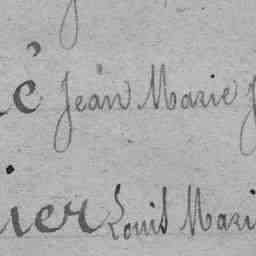 é Jean Marie J
ier Louis Mari